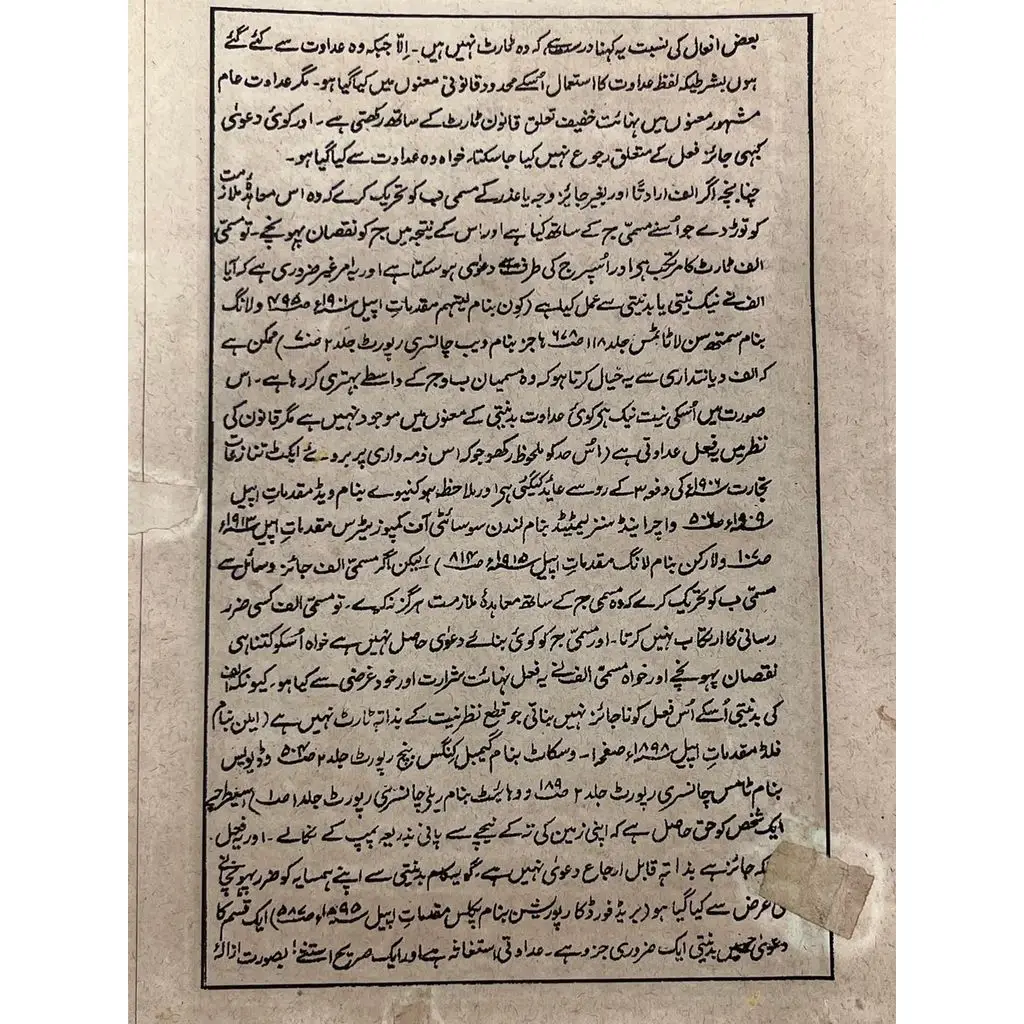 بعض افعال کی نسبت یہ کہنا درست ہے کہ وہ ٹارٹ نہیں ہیں۔ اِلّا جبکہ وہ عداوت سے کئے گئے
ہوں بشرطیکہ لفظ عداوت کا استعمال اُسکے محدود قانونی معنوں میں کیا گیا ہو۔ مگر عداوت عام
مشہور معنوں میں نہائت خفیف تعلق قانون ٹارٹ کے ساتھ رکھتی ہے۔ اور کوئی دعویٰ
کبھی جائز فعل کے متعلق رجوع نہیں کیا جا سکتا۔ خواہ وہ عداوت سے کیا گیا ہو۔
چنانچہ اگر الف ارادتًا اور بغیر جائز وجہ یا عذر کے مسمی ب کو تحریک کرے کہ وہ اس معاہدہ ملازمت
کو توڑ دے جو اُسنے مسمّی ج کے ساتھ کیا ہے اور اس کے نتیجہ میں ج کو نقصان پہونچے۔ تو مسمّی
الف ٹارٹ کا مرتکب ہے اور اُسپر ج کی طرف سے دعویٰ ہو سکتا ہے اور یہ امر غیر ضروری ہے کہ آیا
الف نے نیک نیتی یا بدنیتی سے عمل کیا ہے (کون بنام لیتھم مقدماتِ اپیل ۱۹۰۱ء صـ۴۹۵ ولانگ
بنام سمتھسن لا ٹائمس جلد ۱۱۸ صـ۶۷۸ ہاجز بنام ویب چانسری رپورٹ جلد ۲ صـ۷۰) ممکن ہے
کہ الف دیانتداری سے یہ خیال کرتا ہو کہ وہ مسمیان ب و ج کے واسطے بہتری کر رہا ہے۔ اس
صورت میں اُسکی نیت نیک ہی کوئی عداوت بدنیتی کے معنوں میں موجود نہیں ہے مگر قانون کی
نظر میں یہ فعل عداوتی ہے (اُس حد کو ملحوظ رکھو جو کہ اس ذمہ داری پر بروئے ایکٹ تنازعات
تجارت ۱۹۰۶ء کی دفعہ ۳ کے رو سے عاید کیگئی ہے اور ملاحظہ ہو کنیوے بنام ویڈ مقدماتِ اپیل
۱۹۰۹ء صـ۵۰۶ واچر اینڈ سنز لیمیٹیڈ بنام لندن سوسائٹی آف کمپوزیٹرس مقدماتِ اپیل ۱۹۱۳ء
صـ۱۰۷ ولارکن بنام لانگ مقدماتِ اپیل ۱۹۱۵ء صـ۸۱۴)؛ لیکن اگر مسمّی الف جائز وسائل سے
مسمّی ب کو تحریک کرے کہ وہ مسمی ج کے ساتھ معاہدۂ ملازمت ہرگز نہ کرے۔ تو مسمّی الف کسی ضرر
رسانی کا ارتکاب نہیں کرتا۔ اور مسمّی ج کو کوئی بنائے دعویٰ حاصل نہیں ہے خواہ اُسکو کتنا ہی
نقصان پہونچے اور خواہ مسمّی الف نے یہ فعل نہائت شرارت اور خود غرضی سے کیا ہو۔ کیونکہ الف
کی بدنیتی اُسکے اُس فعل کو ناجائز نہیں بناتی جو قطع نظر نیت کے بذاتہٖ ٹارٹ نہیں ہے (ایلن بنام
فلڈ مقدماتِ اپیل ۱۸۹۸ء صفحہ ۱۔ وسکاٹ بنام گیمبل کنگس بنچ رپورٹ جلد ۲ صـ۵۰۴ وڈیویس
بنام ٹامس چانسری رپورٹ جلد ۲ صـ۱۸۹ ووہایٹ بنام ریلی چانسری رپورٹ جلد ۱ صـ۱) اسیطرح سے
ایک شخص کو حق حاصل ہے کہ اپنی زمین کی تہ کے نیچے سے پانی بذریعہ پمپ کے نکالے۔ اور یہ فعل
کہ جائز ہے بذاتہٖ قابل ارجاع دعویٰ نہیں ہے۔ گو یہ کام بدنیتی سے اپنے ہمسایہ کو ضرر پہونچانے
غرض سے کیا گیا ہو (بریڈفورڈ کارپوریشن بنام پکلس مقدماتِ اپیل ۱۸۹۵ء صـ۵۸۷) ایک قسم کا
دعویٰ جسمیں بدنیتی ایک ضروری جزو ہے۔ عداوتی استغاثہ ہے اور ایک صریح استثنےٰ بصورت ازالۂ